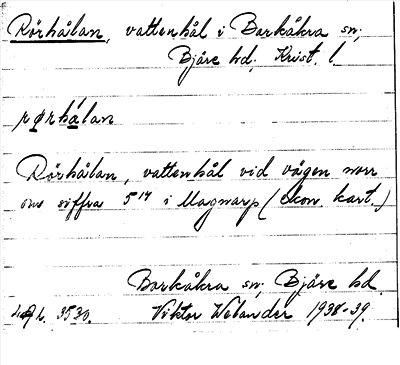 Rörhålan, vattenhål i Barkåkra sn,
Bjäre hd, Krist. l.
rørhålan
Rörhålan, vattenhål vid vägen norr
om siffra 5¹⁴ i Magnarp (ekon. kart.)
Barkåkra sn, Bjäre hd.
3530. Viktor Welander 1938-39.